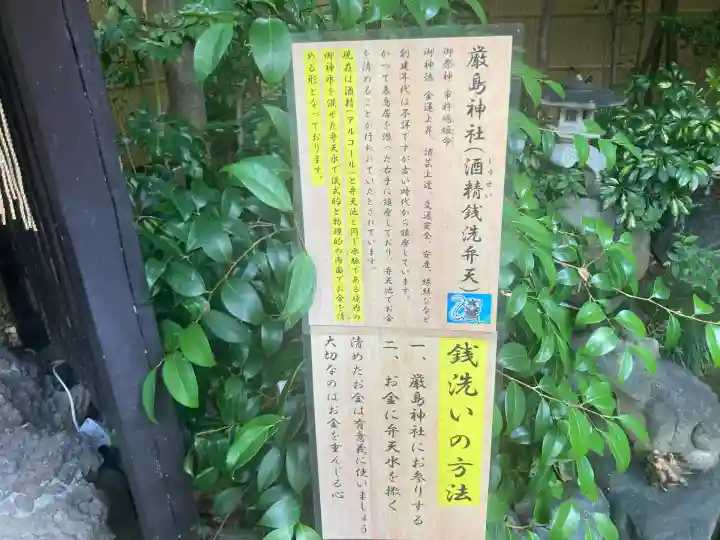 厳島神社(酒精銭洗弁天)
しゅせい
御祭神 市杵嶋姫命
御神徳 金運上昇、諸芸上達、交通安全、安産、縁結びなど
創建年代は不詳ですが古い時代から鎮座しています。
かつて表鳥居を潜った右手に鎮座しており、弁天池でお金
を清めることが行われていたとされています。
現在は酒精(アルコール)と弁天池と同じ水脈である境内の
御神水を混ぜた弁天水で儀式的と物理的の両面でお金を清
める形となっております。
銭洗いの方法
一、厳島神社にお参りする
二、お金に弁天水を撒く
清めたお金は有意義に使いましょう
大切なのはお金を重んじる心